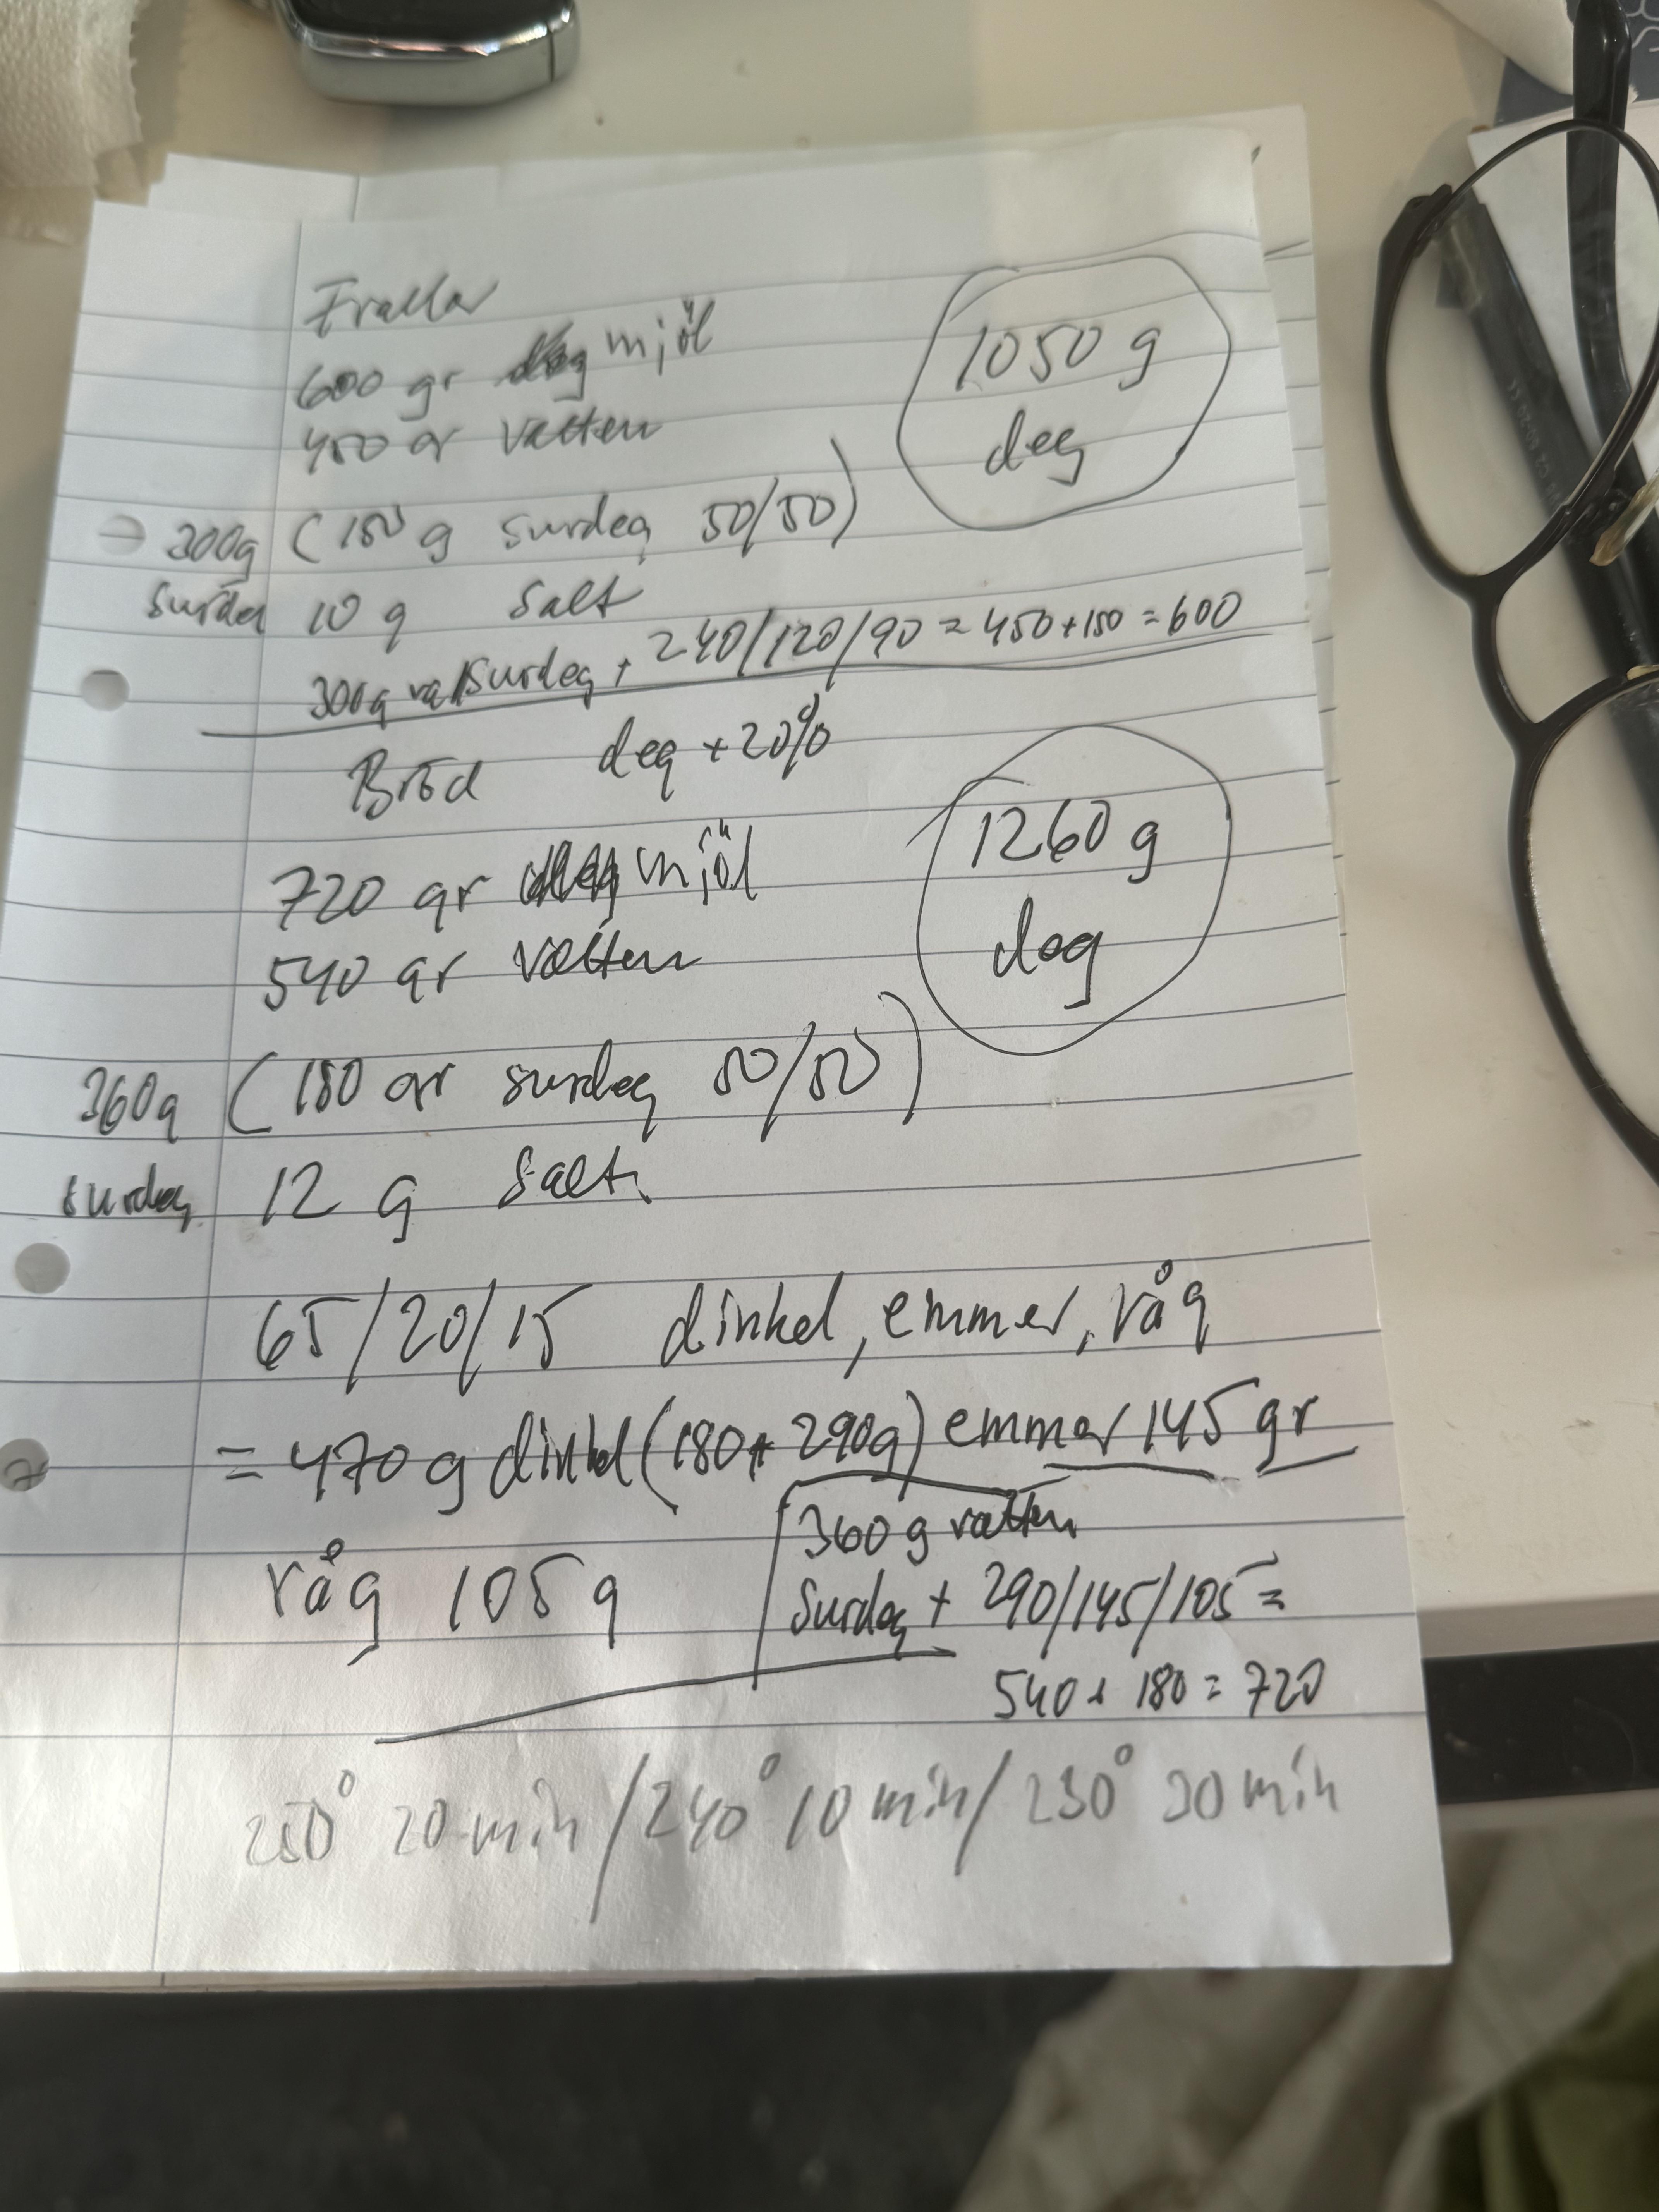 Frallor
600 gr mjöl
450 gr vatten
1050 g
deg
300g (150 g surdeg 50/50)
surdeg 10 g salt
300g vat/surdeg + 240/120/90 = 450+150 = 600
Bröd deg + 20%
720 gr mjöl
540 gr vatten
1260 g
deg
360g (180 gr surdeg 50/50)
surdeg 12 g salt
65/20/15 dinkel, emmer, råg
= 470 g dinkel (180 + 290g) emmer 145 gr
råg 105 g
360 g vatten
surdeg + 290/145/105 =
540 + 180 = 720
250° 20 min / 240° 10 min / 230° 30 min